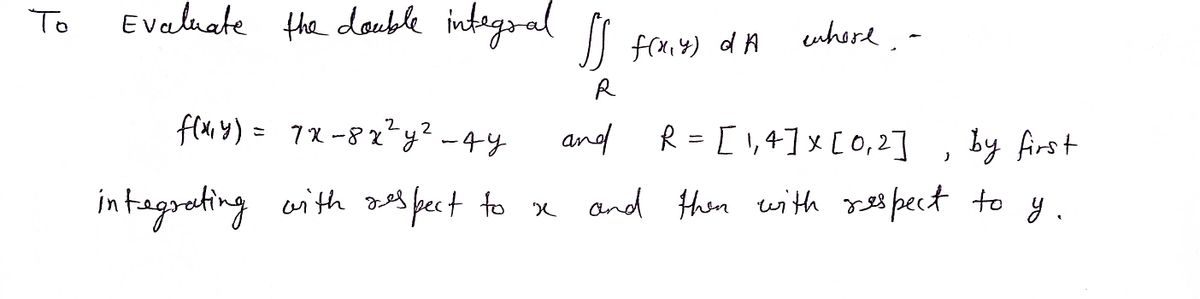 To Evaluate the double integral ∬ f(x,y) dA where,-
R
f(x,y) = 7x-8x²y²-4y and R = [1,4]x[0,2] , by first
integrating with respect to x and then with respect to y.